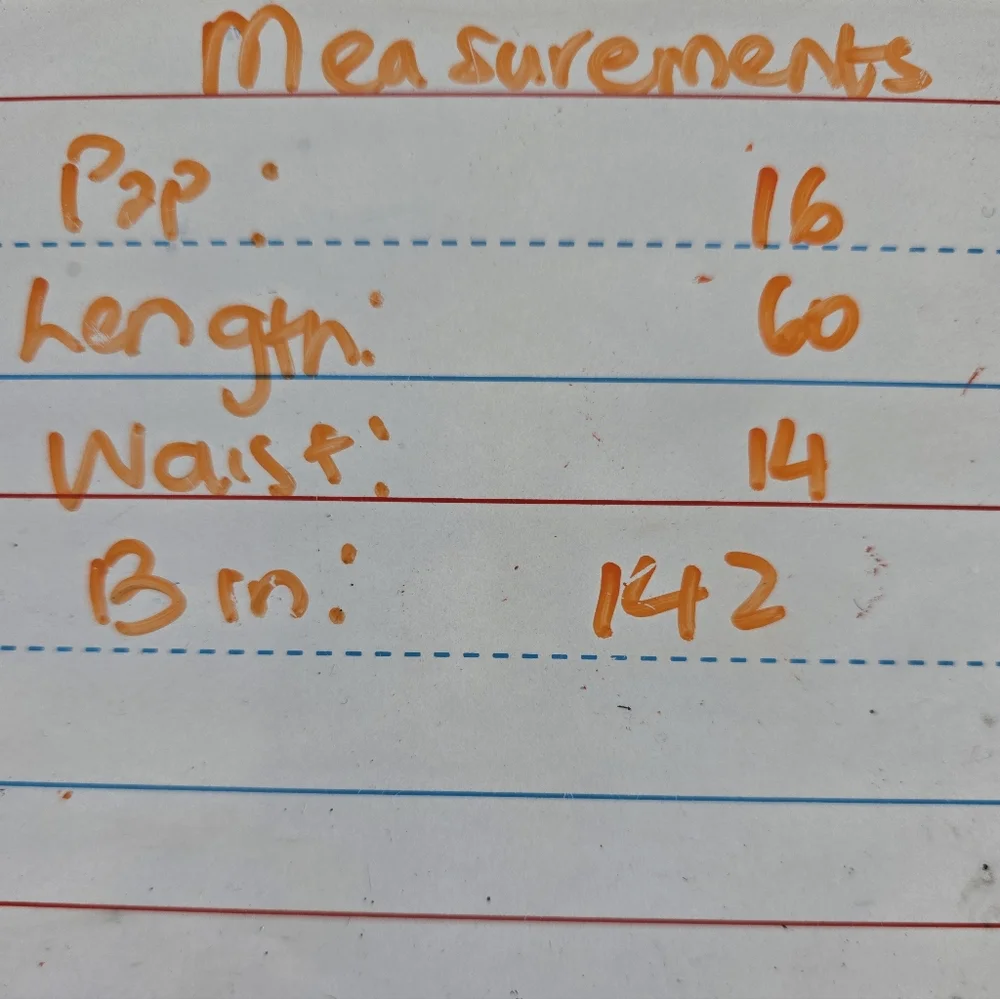 Measurements
Pap: 16
Length: 60
Waist: 14
Bin: 142